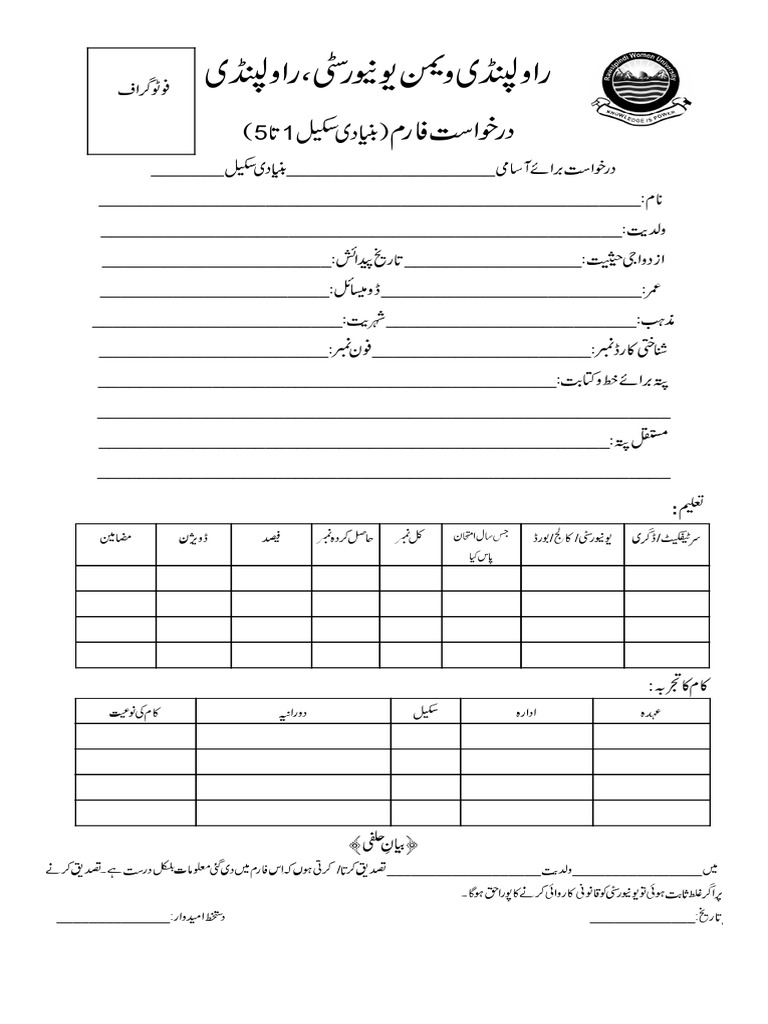 راولپنڈی ویمن یونیورسٹی، راولپنڈی
Rawalpindi Women University
KNOWLEDGE IS POWER
فوٹوگراف
درخواست فارم (بنیادی سکیل 1 تا 5)
درخواست برائے آسامی__________________بنیادی سکیل________
نام:__________________
ولدیت:__________________
ازدواجی حیثیت:__________________ تاریخ پیدائش:__________________
عمر:__________________ڈومیسائل:__________________
مذہب:__________________شہریت:__________________
شناختی کارڈ نمبر:__________________فون نمبر:__________________
پتہ برائے خط و کتابت:__________________
__________________
مستقل پتہ:__________________
__________________
تعلیم:
سرٹیفکیٹ/ڈگری یونیورسٹی/کالج/بورڈ جس سال امتحان پاس کیا کل نمبر حاصل کردہ نمبر فیصد ڈویژن مضامین
کام کا تجربہ:
عہدہ ادارہ سکیل دورانیہ کام کی نوعیت
﴿بیانِ حلفی﴾
میں__________________ولدیت__________________تصدیق کرتا/کرتی ہوں کہ اس فارم میں دی گئی معلومات بلکل درست ہے۔ تصدیق کرنے
پر اگر غلط ثابت ہوئی تو یونیورسٹی کو قانونی کاروائی کرنے کا پورا حق ہوگا۔
تاریخ:__________________ دستخط امیدوار:__________________